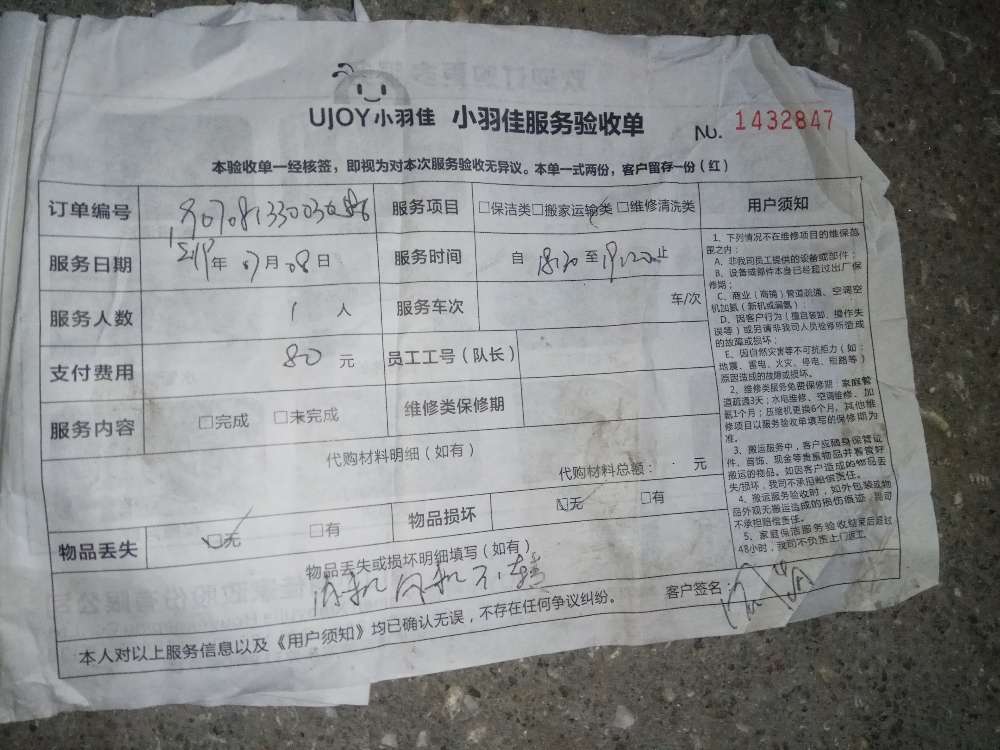 UJOY小羽佳 小羽佳服务验收单 No. 1432847
本验收单一经核签，即视为对本次服务验收无异议。本单一式两份，客户留存一份（红）
订单编号
服务项目 □保洁类□搬家运输类□维修清洗类
用户须知
服务日期 2019年07月08日
服务时间 自 18:20至19:20止
服务人数 1人
服务车次 车/次
支付费用 80元
员工工号（队长）
服务内容 □完成 □未完成
维修类保修期
代购材料明细（如有）
代购材料总额： 元
物品丢失 □无 □有
物品损坏 □无 □有
物品丢失或损坏明细填写（如有）
客户签名：
本人对以上服务信息以及《用户须知》均已确认无误，不存在任何争议纠纷。
1、下列情况不在维修项目的维保范
围之内：
A、非我司员工提供的设备或部件；
B、设备或部件本身已经超过出厂保
修期；
C、商业（商铺）管道疏通、空调空
机加氨（新机或漏氨）
D、因客户行为（擅自装卸、操作失
误等）或另请非我司人员检修所造成
的故障或损坏；
E、因自然灾害等不可抗拒力（如：
地震、雷电、火灾、停电、短路等）
原因造成的故障或损坏。
2、维修类服务免费保修期：家庭管
道疏通3天；水电维修、空调维修、加
氨1个月；压缩机更换6个月，其他维
修项目以服务验收单填写的保修期为
准。
3、搬运服务中，客户应随身保管证
件、首饰、现金等贵重物品并看管好
搬运的物品。如因客户造成的物品丢
失/损坏，我司不承担赔偿责任。
4、搬运服务验收时，如外包装或物
品外观无搬运造成的损伤痕迹，我司
不承担赔偿责任。
5、家庭保洁服务验收结束后超过
48小时，我司不负责上门返工。